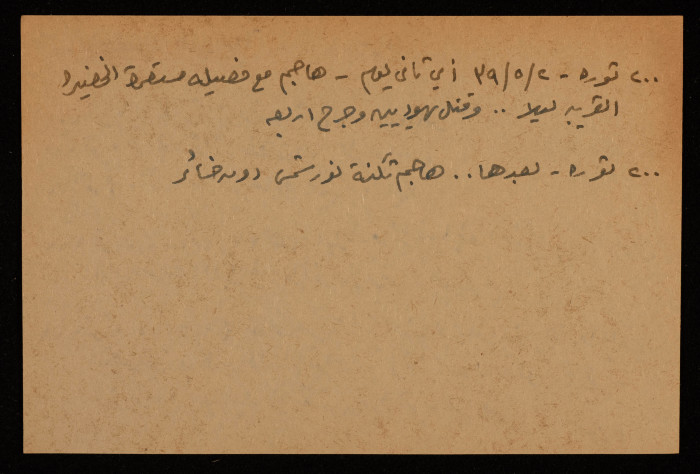 ٢٠٠ ثوره - ٣٩/٥/٢ أي ثاني يوم - هاجم مع فصيله مستعمرة الخضيره
القريبه ليلا .. وقتل يهوديين وجرح اربعه
٢٠٠ ثوره - بعدها .. هاجم ثكنة نور شمس دون خسائر